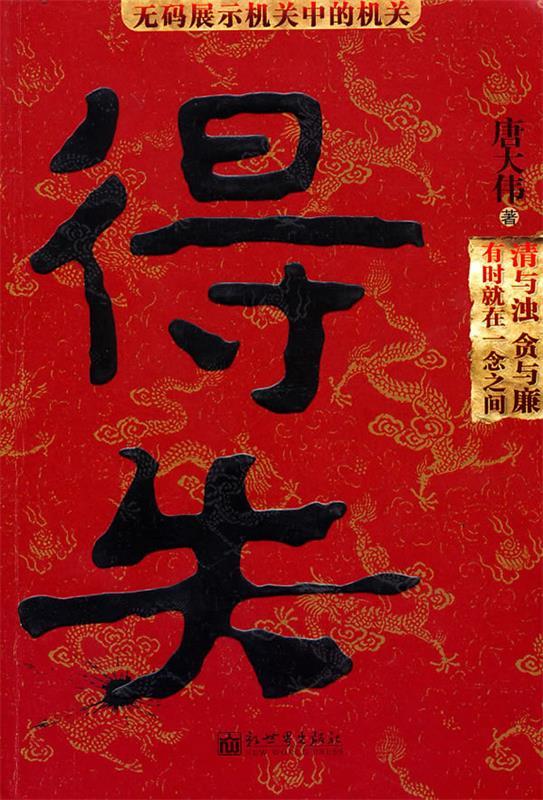 无码展示机关中的机关
得失
唐大伟 著
清与浊 贪与廉
有时就在一念之间
新世界出版社
NEW WORLD PRESS